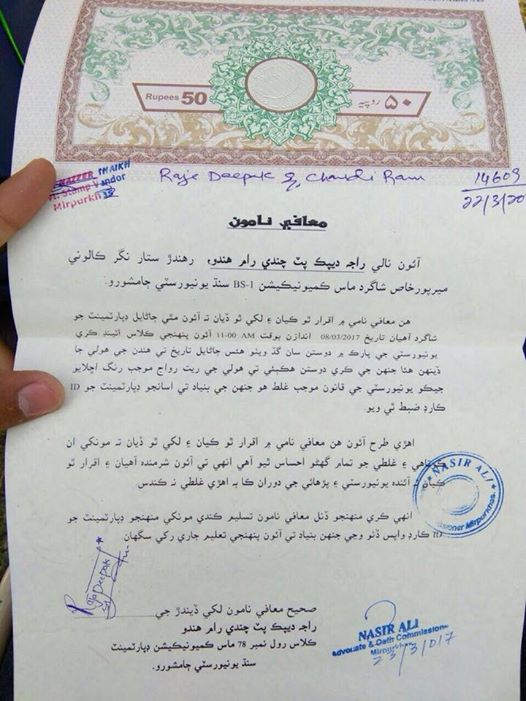 Rupees 50
۵۰ روپيه
SHAIKH
Stamp Vendor
Mirpurkhas
Raja Deepak S/o Chandi Ram
14609
22/3/20
معافي نامون
آئون نالي راجہ ديپڪ پٽ چندي رام هندو، رهندڙ ستار نگر ڪالوني
ميرپورخاص شاگرد ماس ڪميونيڪيشن BS-1 سنڌ يونيورسٽي ڄامشورو.
هن معافي نامي ۾ اقرار ٿو ڪيان ۽ لکي ٿو ڏيان تہ آئون مٿي ڄاڻايل ڊپارٽمينٽ جو
شاگرد آهيان تاريخ 08/03/2017 اندازن بوقت 11-00 AM آئون پنهنجي ڪلاس اٽينڊ ڪري
يونيورسٽي جي پارڪ ۾ دوستن سان گڏ ويٺو هئس ڄاڻايل تاريخ تي هندن جي هولي جا
ڏينهن هئا جنهن جي ڪري دوستن هڪٻئي تي هولي جي ريت رواج موجب رنگ اڇلايو
جيڪو يونيورسٽي جي قانون موجب غلط هو جنهن جي بنياد تي اسانجو ڊپارٽمينٽ جو ID
ڪارڊ ضبط ٿي ويو.
اهڙي طرح آئون هن معافي نامي ۾ اقرار ٿو ڪيان ۽ لکي ٿو ڏيان تہ مونکي ان
ڪوتاهي ۽ غلطي جو تمام گهڻو احساس ٿيو آهي انهي تي آئون شرمنده آهيان ۽ اقرار ٿو
ڪيان تہ آئنده يونيورسٽي ۽ پڙهائي جي دوران ڪا بہ اهڙي غلطي نہ ڪندس.
انهي ڪري منهنجو ڏنل معافي نامون تسليم ڪندي مونکي منهنجو ڊپارٽمينٽ جو
ID ڪارڊ واپس ڏنو وڃي جنهن بنياد تي آئون پنهنجي تعليم جاري رکي سگهان.
NASIR ALI
Commissioner Mirpurkhas
Raja Deepak
صحيح معافي نامون لکي ڏيندڙ جي
راجہ ديپڪ پٽ چندي رام هندو
ڪلاس رول نمبر 78 ماس ڪميونيڪيشن ڊپارٽمينٽ
سنڌ يونيورسٽي ڄامشورو.
NASIR ALI
Advocate & Oath Commissioner
Mirpurkhas
23/3/017